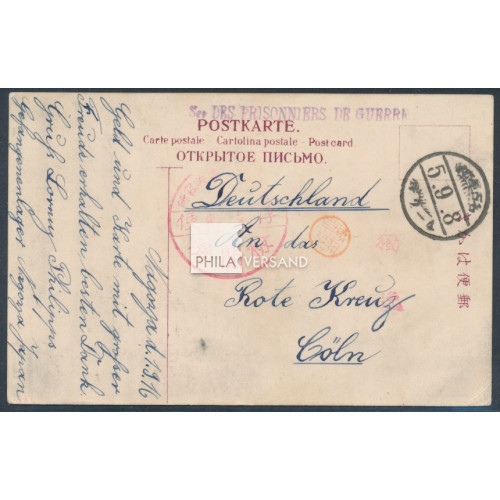 Sce DES PRISONNIERS DE GUERRE
POSTKARTE.
Carte postale - Cartolina postale - Post card
ОТКРЫТОЕ ПИСЬМО.
Deutschland
An das
Rote Kreuz
Cöln
PHILA VERSAND
5.9.8
郵便はき
Nagoya d. 1.8.16
Geld und Karte mit großer
Freude erhalten besten Dank.
Gruß Philipps
Gefangenenlager Nagoya Japan